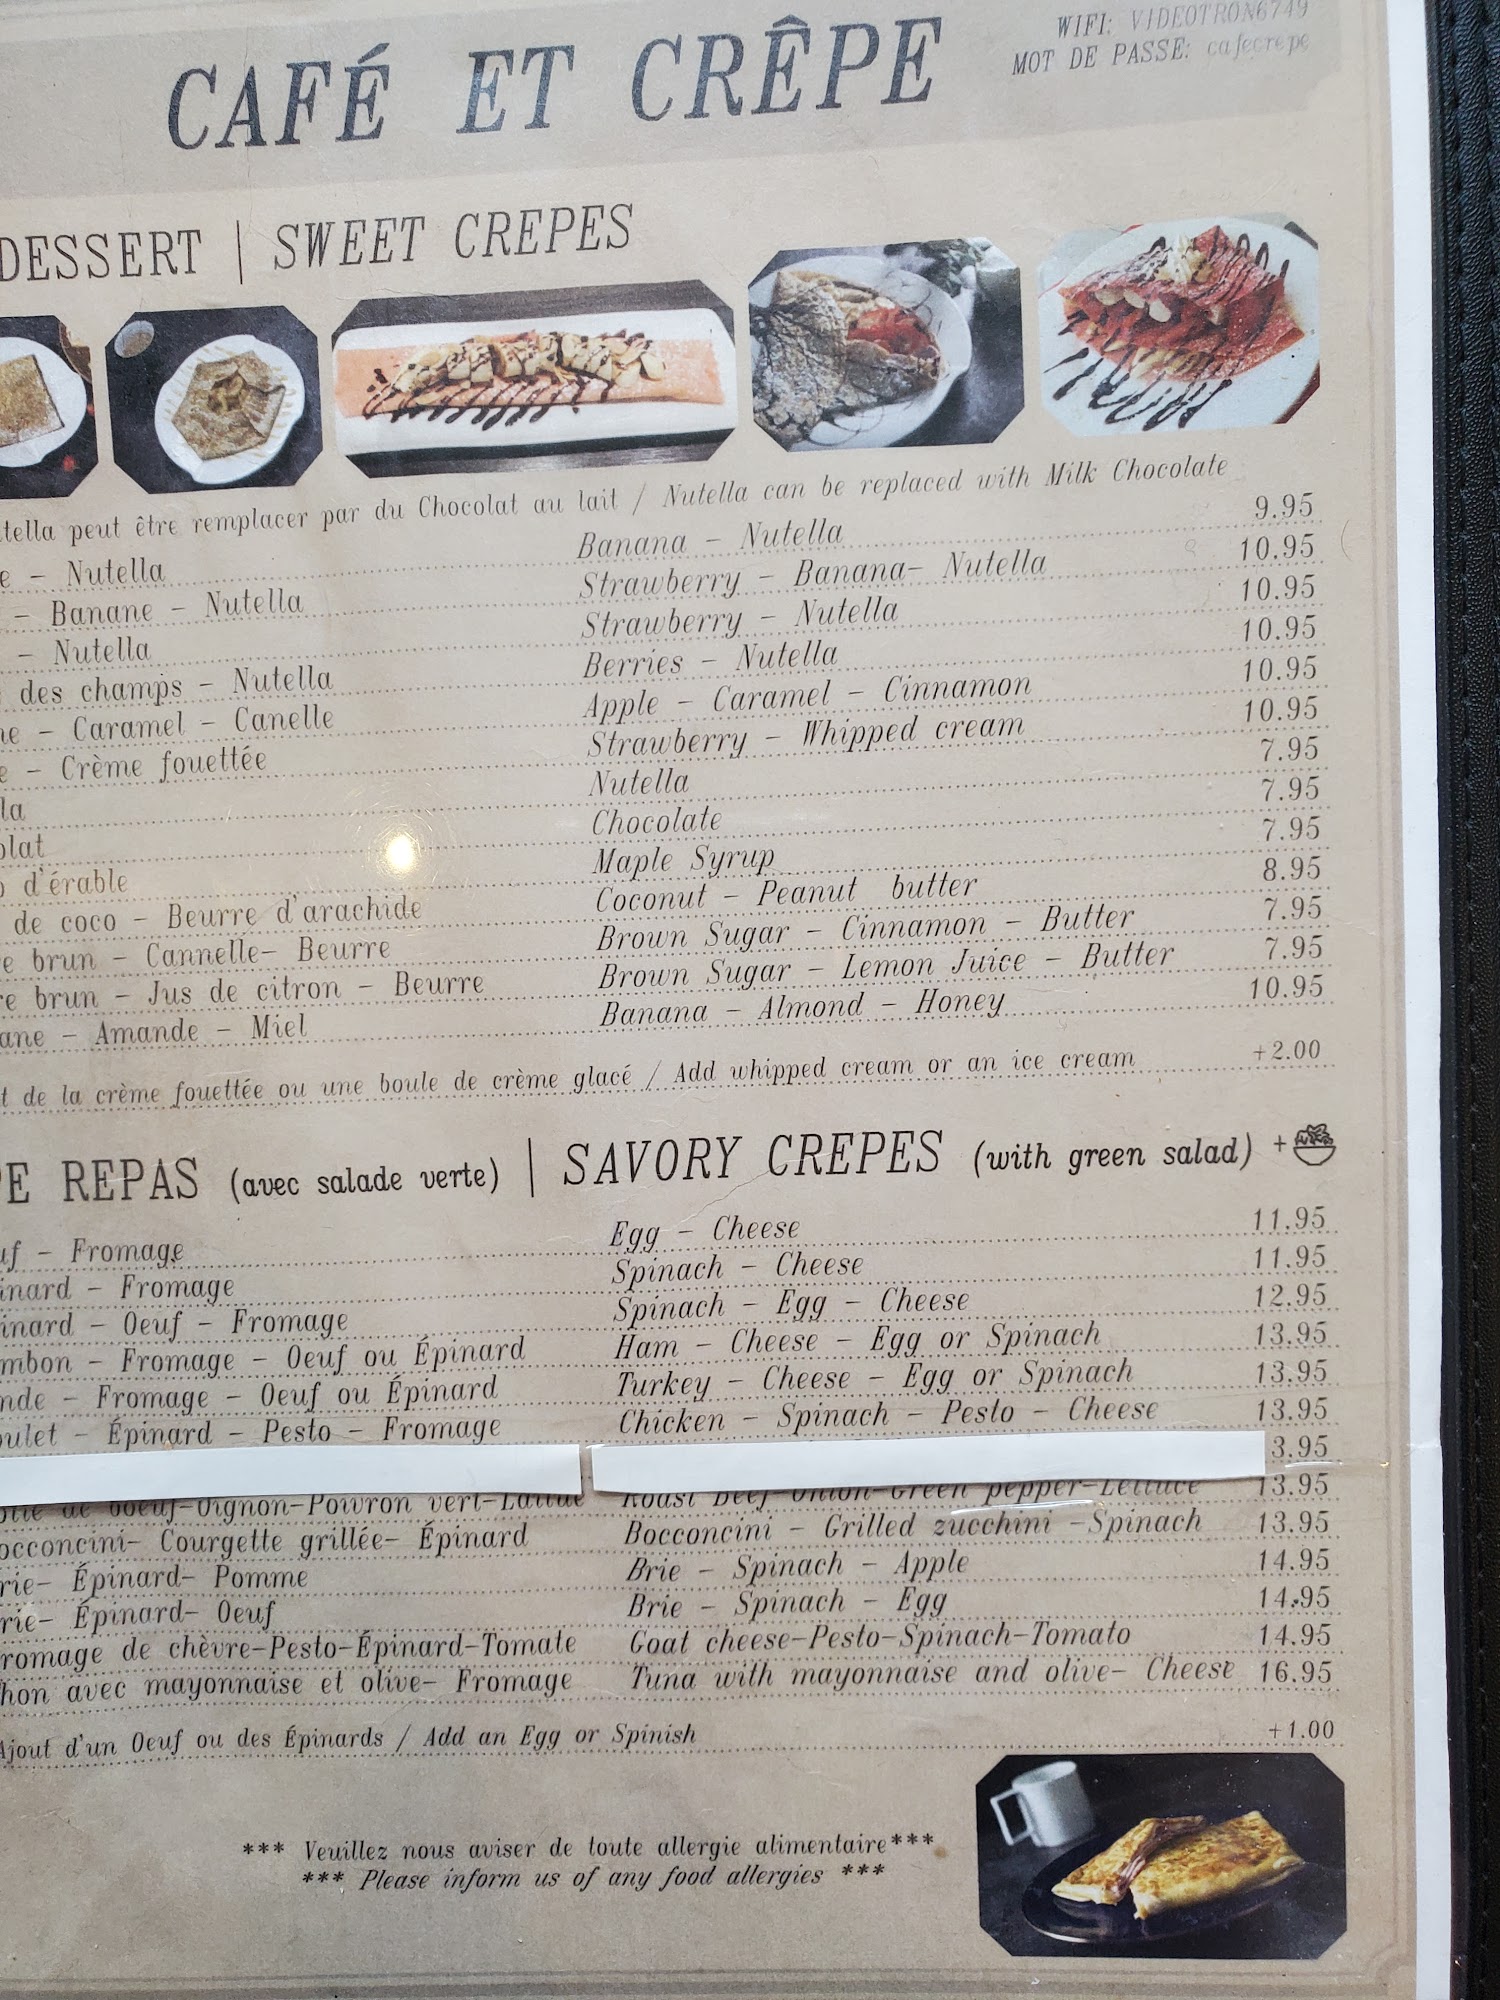 WIFI: VIDEOTRON6749
CAFÉ ET CRÊPE
MOT DE PASSE: cafecrepe
DESSERT | SWEET CREPES
peut être remplacer par du Chocolat au lait / Nutella can be replaced with Milk Chocolate
– Nutella Banana – Nutella 9.95
– Banane – Nutella Strawberry – Banana– Nutella 10.95
– Nutella Strawberry – Nutella 10.95
des champs – Nutella Berries – Nutella 10.95
– Caramel – Canelle Apple – Caramel – Cinnamon 10.95
– Crème fouettée Strawberry – Whipped cream 10.95
Nutella 7.95
Chocolate 7.95
d'érable Maple Syrup 7.95
de coco – Beurre d'arachide Coconut – Peanut butter 8.95
brun – Cannelle– Beurre Brown Sugar – Cinnamon – Butter 7.95
brun – Jus de citron – Beurre Brown Sugar – Lemon Juice – Butter 7.95
– Amande – Miel Banana – Almond – Honey 10.95
de la crème fouettée ou une boule de crème glacé / Add whipped cream or an ice cream +2.00
REPAS (avec salade verte) | SAVORY CREPES (with green salad) +
– Fromage Egg – Cheese 11.95
– Fromage Spinach – Cheese 11.95
– Oeuf – Fromage Spinach – Egg – Cheese 12.95
– Fromage – Oeuf ou Épinard Ham – Cheese – Egg or Spinach 13.95
– Fromage – Oeuf ou Épinard Turkey – Cheese – Egg or Spinach 13.95
– Épinard – Pesto – Fromage Chicken – Spinach – Pesto – Cheese 13.95
3.95
de boeuf–Oignon–Poivron vert–Laitue Roast Beef–Onion–Green pepper–Lettuce 13.95
– Courgette grillée– Épinard Bocconcini – Grilled zucchini –Spinach 13.95
– Épinard– Pomme Brie – Spinach – Apple 14.95
– Épinard– Oeuf Brie – Spinach – Egg 14.95
de chèvre–Pesto–Épinard–Tomate Goat cheese–Pesto–Spinach–Tomato 14.95
avec mayonnaise et olive– Fromage Tuna with mayonnaise and olive– Cheese 16.95
Ajout d'un Oeuf ou des Épinards / Add an Egg or Spinish +1.00
*** Veuillez nous aviser de toute allergie alimentaire***
*** Please inform us of any food allergies ***